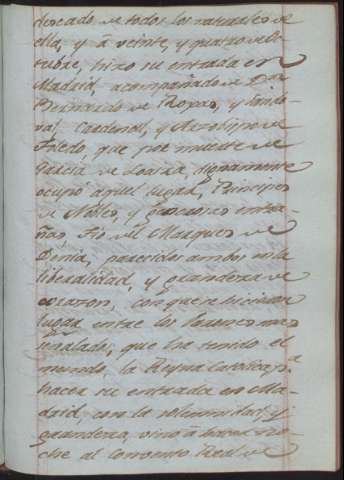 deseado de todos los naturales de
ella, y à veinte, y quatro de Oc-
tubre, hizo su entrada en
Madrid, acompañado de Don
Bernardo de Roxas, y Sando-
val, Cardenal, y Arzobispo de
Toledo, que por muerte de
Garcia de Loaisa, dignamente
ocupó aquel lugar, Principes
de Nobles, y generosas entra-
ñas, Tio del Marques de
Denia, parecidos ambos en la
liberalidad, y grandeza de
corazon, con que se hicieron
lugar entre los Varones mas
señalados, que ha tenido el
mundo, la Reyna Catolica, pa
hacer su entrada en Ma-
drid, con la solemnidad, y
grandeza, vino à hacer no-
che al Convento Real de